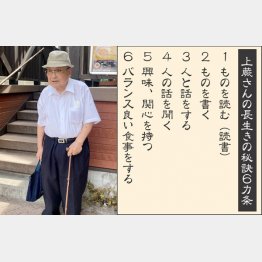 上蔵さんの長生きの秘訣6カ条
1 ものを読む(読書)
2 ものを書く
3 人と話をする
4 人の話を聞く
5 興味、関心を持つ
6 バランス良い食事をする